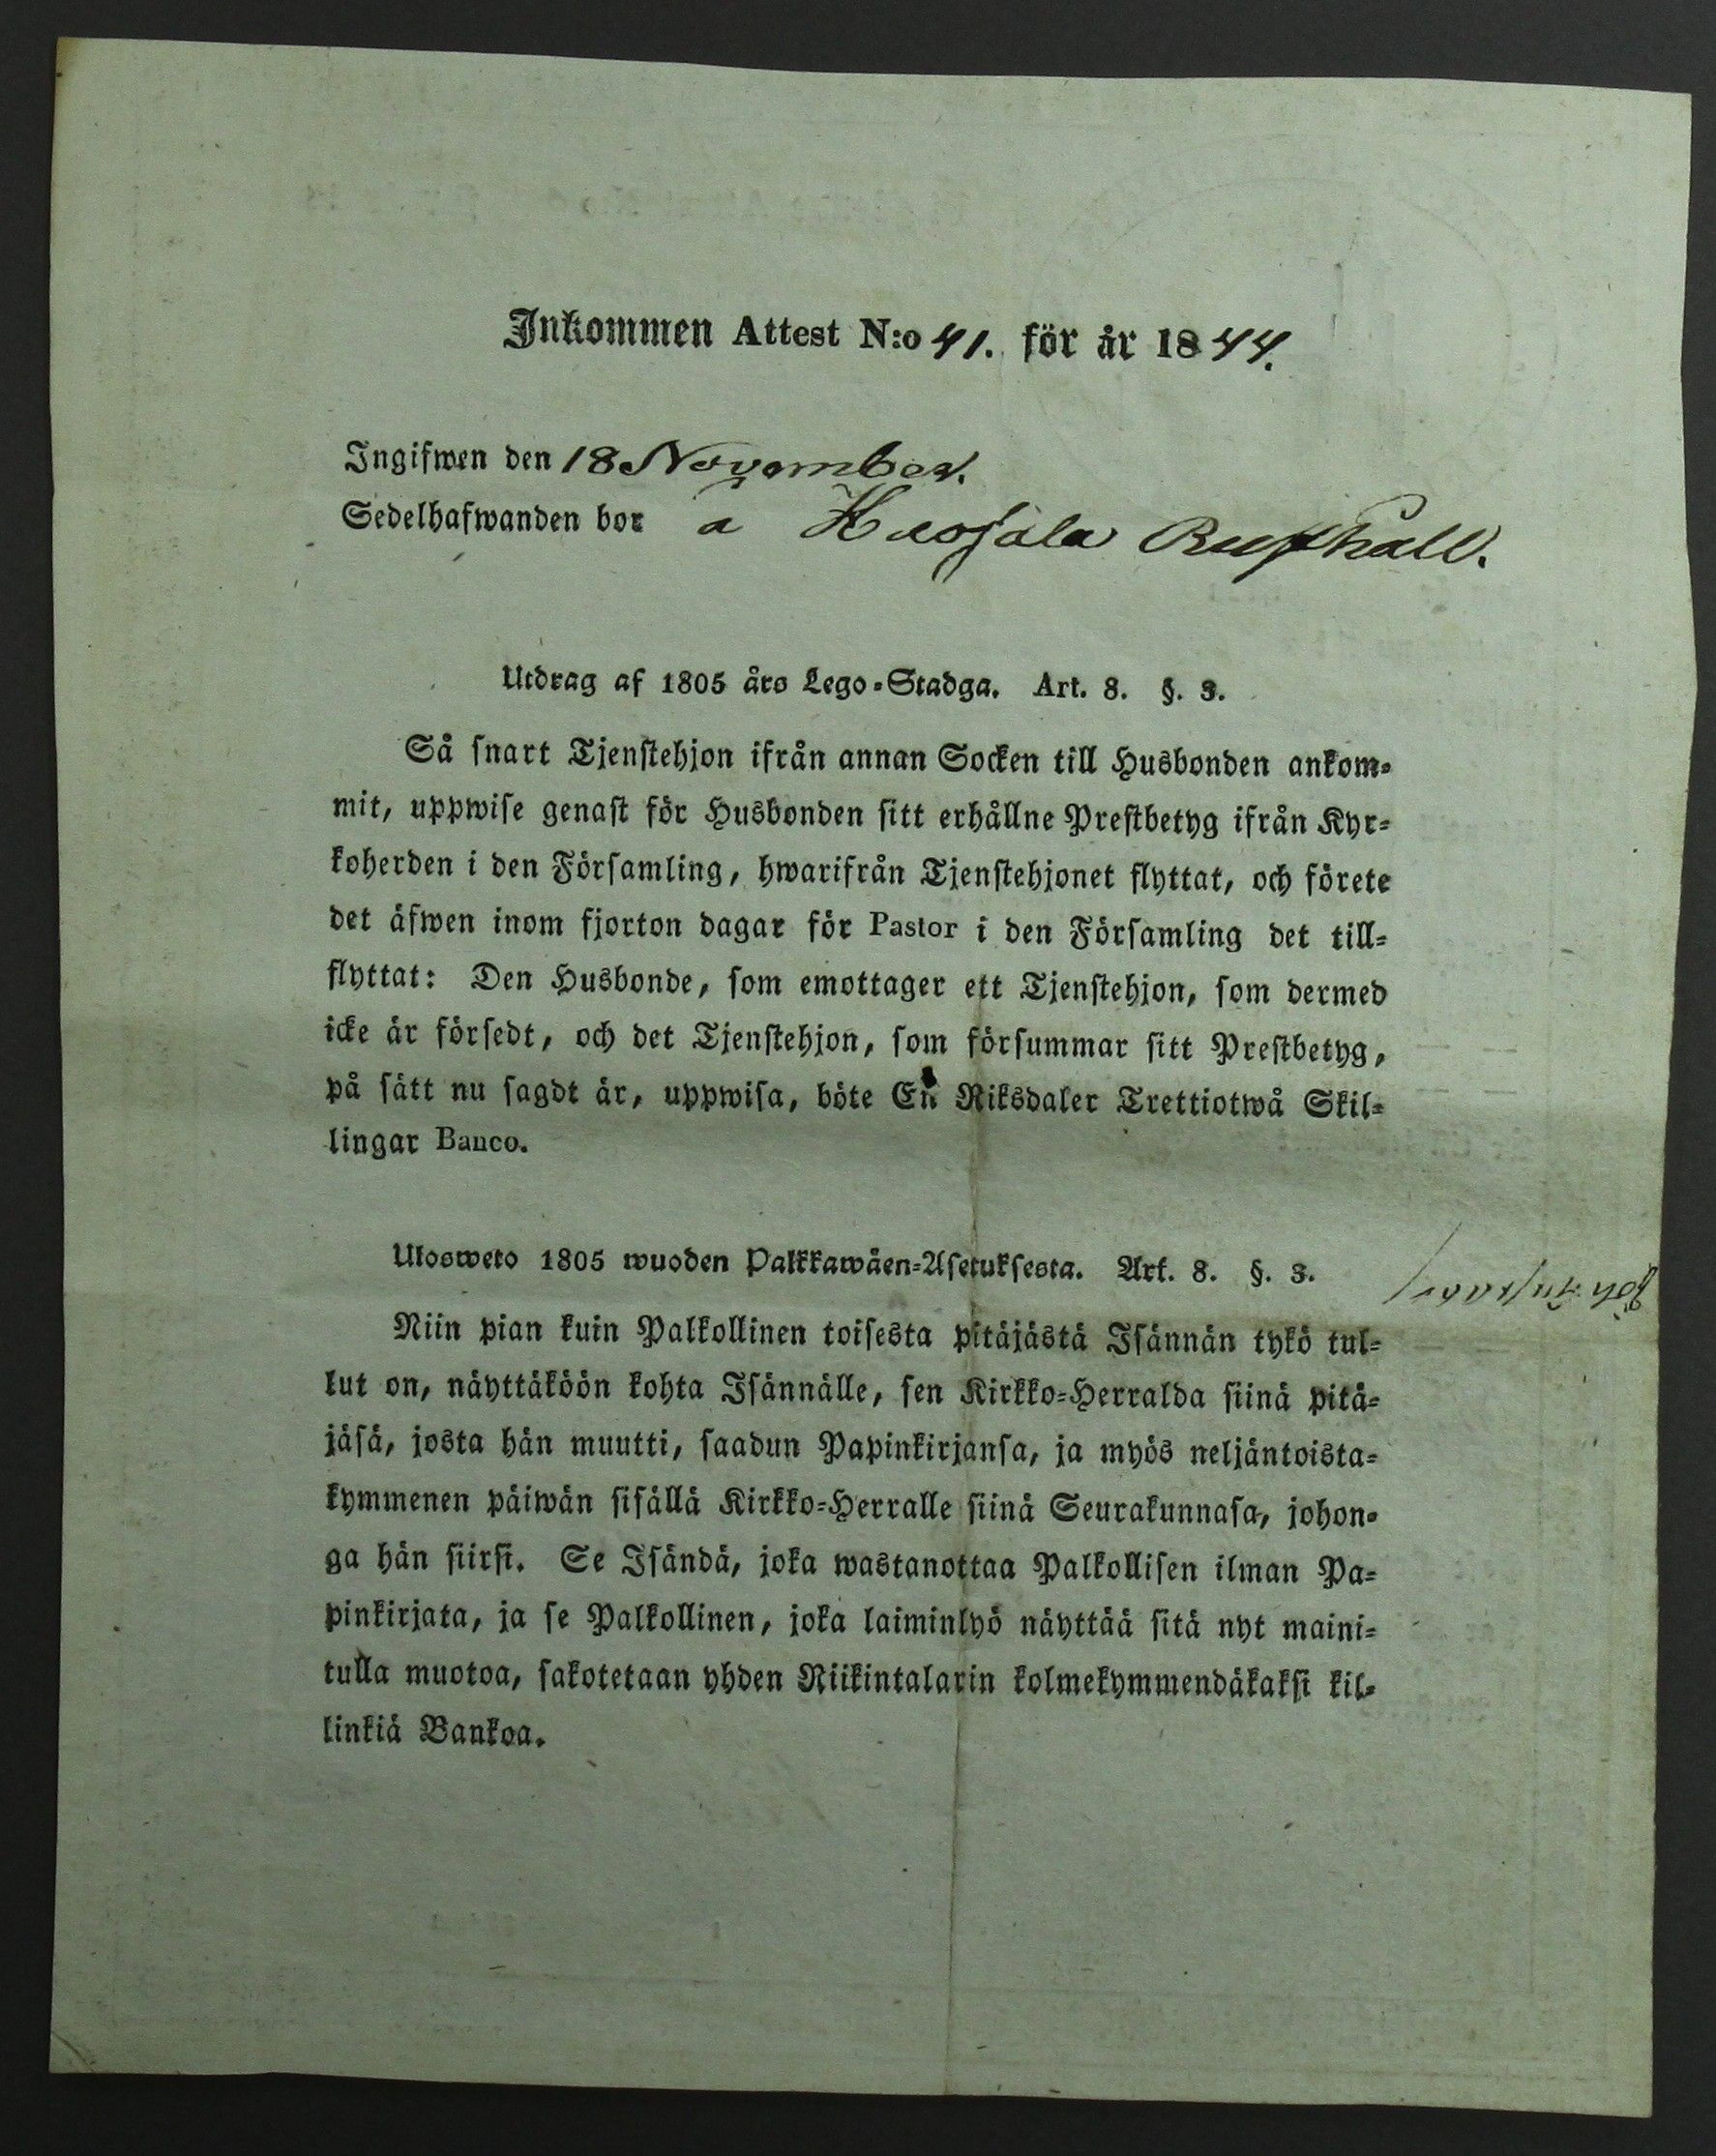 Inkommen Attest N:o 41. för år 1844.
Ingifwen den 18 November.
Sedelhafwanden bor a Rusthåll.
Utdrag af 1805 års Lego-Stadga. Art. 8. §. 3.
Så snart Tjenstehjon ifrån annan Socken till Husbonden ankom-
mit, uppwise genast för Husbonden sitt erhållne Prestbetyg ifrån Kyr-
koherden i den Församling, hwarifrån Tjenstehjonet flyttat, och förete
det äfwen inom fjorton dagar för Pastor i den Församling det till-
flyttat: Den Husbonde, som emottager ett Tjenstehjon, som dermed
icke är försedt, och det Tjenstehjon, som försummar sitt Prestbetyg,
på sätt nu sagdt är, uppwisa, böte En Riksdaler Trettiotwå Skil-
lingar Banco.
Ulosweto 1805 wuoden Palkkawäen-Asetuksesta. Art. 8. §. 3.
Niin pian kuin Palkollinen toisesta pitäjästä Isännän tykö tul-
lut on, näyttäköön kohta Isännälle, sen Kirkko-Herralda siinä pitä-
jäsä, josta hän muutti, saadun Papinkirjansa, ja myös neljäntoista-
kymmenen päiwän sisällä Kirkko-Herralle siinä Seurakunnasa, johon-
ga hän siirsi. Se Isändä, joka wastanottaa Palkollisen ilman Pa-
pinkirjata, ja se Palkollinen, joka laiminlyö näyttää sitä nyt maini-
tulla muotoa, sakotetaan yhden Riikintalarin kolmekymmendäkaksi kil-
linkiä Bankoa.